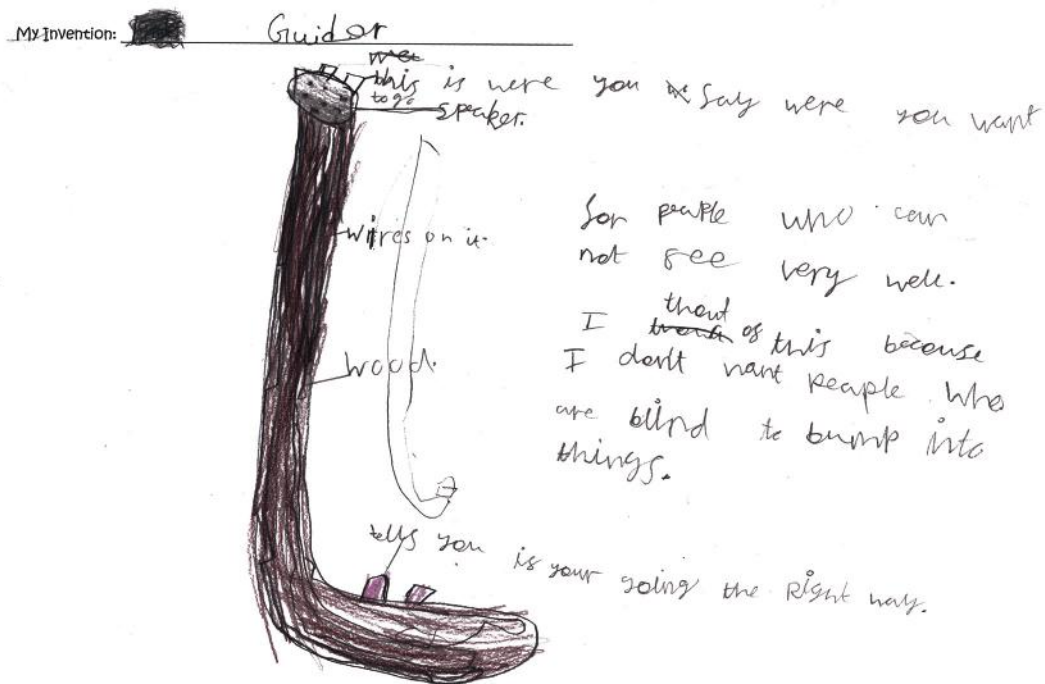 My Invention: Guider
this is were you say were you want
to go
speaker.
wires on it.
wood.
for peuple who can
not see very well.
I thout of this because
I don't want peaple who
are blind to bump into
things.
tells you is your going the Right way.